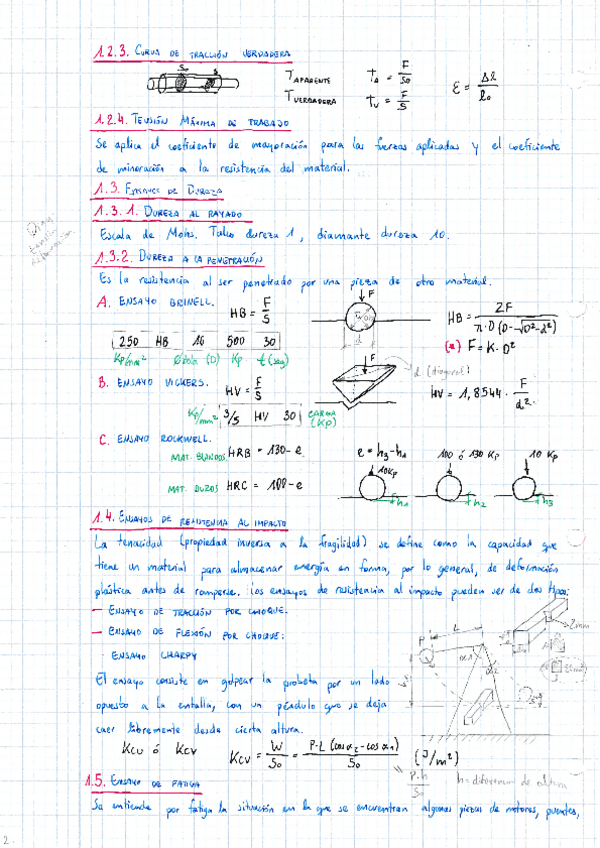 1.2.3. CURVA DE TRACCIÓN VERDADERA
So S
TAPARENTE TA = F/So
TVERDADERA TV = F/S
ε = Δl/lo
1.2.4. TENSIÓN MÁXIMA DE TRABAJO
Se aplica el coeficiente de mayoración para las fuerzas aplicadas y el coeficiente
de minoración a la resistencia del material.
1.3. ENSAYOS DE DUREZA
1.3.1. DUREZA AL RAYADO
Escala de Mohs. Talco dureza 1, diamante dureza 10.
1.3.2. DUREZA A LA PENETRACIÓN
Es la resistencia al ser penetrado por una pieza de otro material.
A. ENSAYO BRINELL. HB = F/S
F
d
HB = 2F/π·D(D-√D²-d²)
(*) F = K·D²
250 HB 10 500 30
Kp/mm² Øbola (D) Kp t (seg)
B. ENSAYO VICKERS. HV = F/S
F
d (diagonal)
HV = 1,8544 · F/d²
Kp/mm² 3/5 HV 30 CARGA (KP)
C. ENSAYO ROCKWELL.
MAT. BLANDOS HRB = 130-e
MAT. DUROS HRC = 100-e
e = h3-h1
10Kp 100 ó 130 Kp 10 Kp
h1 h2 h3
1.4. ENSAYOS DE RESISTENCIA AL IMPACTO
La tenacidad (propiedad inversa a la fragilidad) se define como la capacidad que
tiene un material para almacenar energía en forma, por lo general, de deformación
plástica antes de romperse. Los ensayos de resistencia al impacto pueden ser de dos tipos:
— ENSAYO DE TRACCIÓN POR CHOQUE.
— ENSAYO DE FLEXIÓN POR CHOQUE:
ENSAYO CHARPY
El ensayo consiste en golpear la probeta por un lado
opuesto a la entalla, con un péndulo que se deja
caer libremente desde cierta altura.
P L α1 α2
2mm
KCU ó KCV KCV = W/So = P·L (cos α2 - cos α1)/So (J/m²)
P·h/So h= diferencia de altura
1.5. ENSAYO DE FATIGA
Se entiende por fatiga la situación en la que se encuentran algunas piezas de motores, puentes,
2.